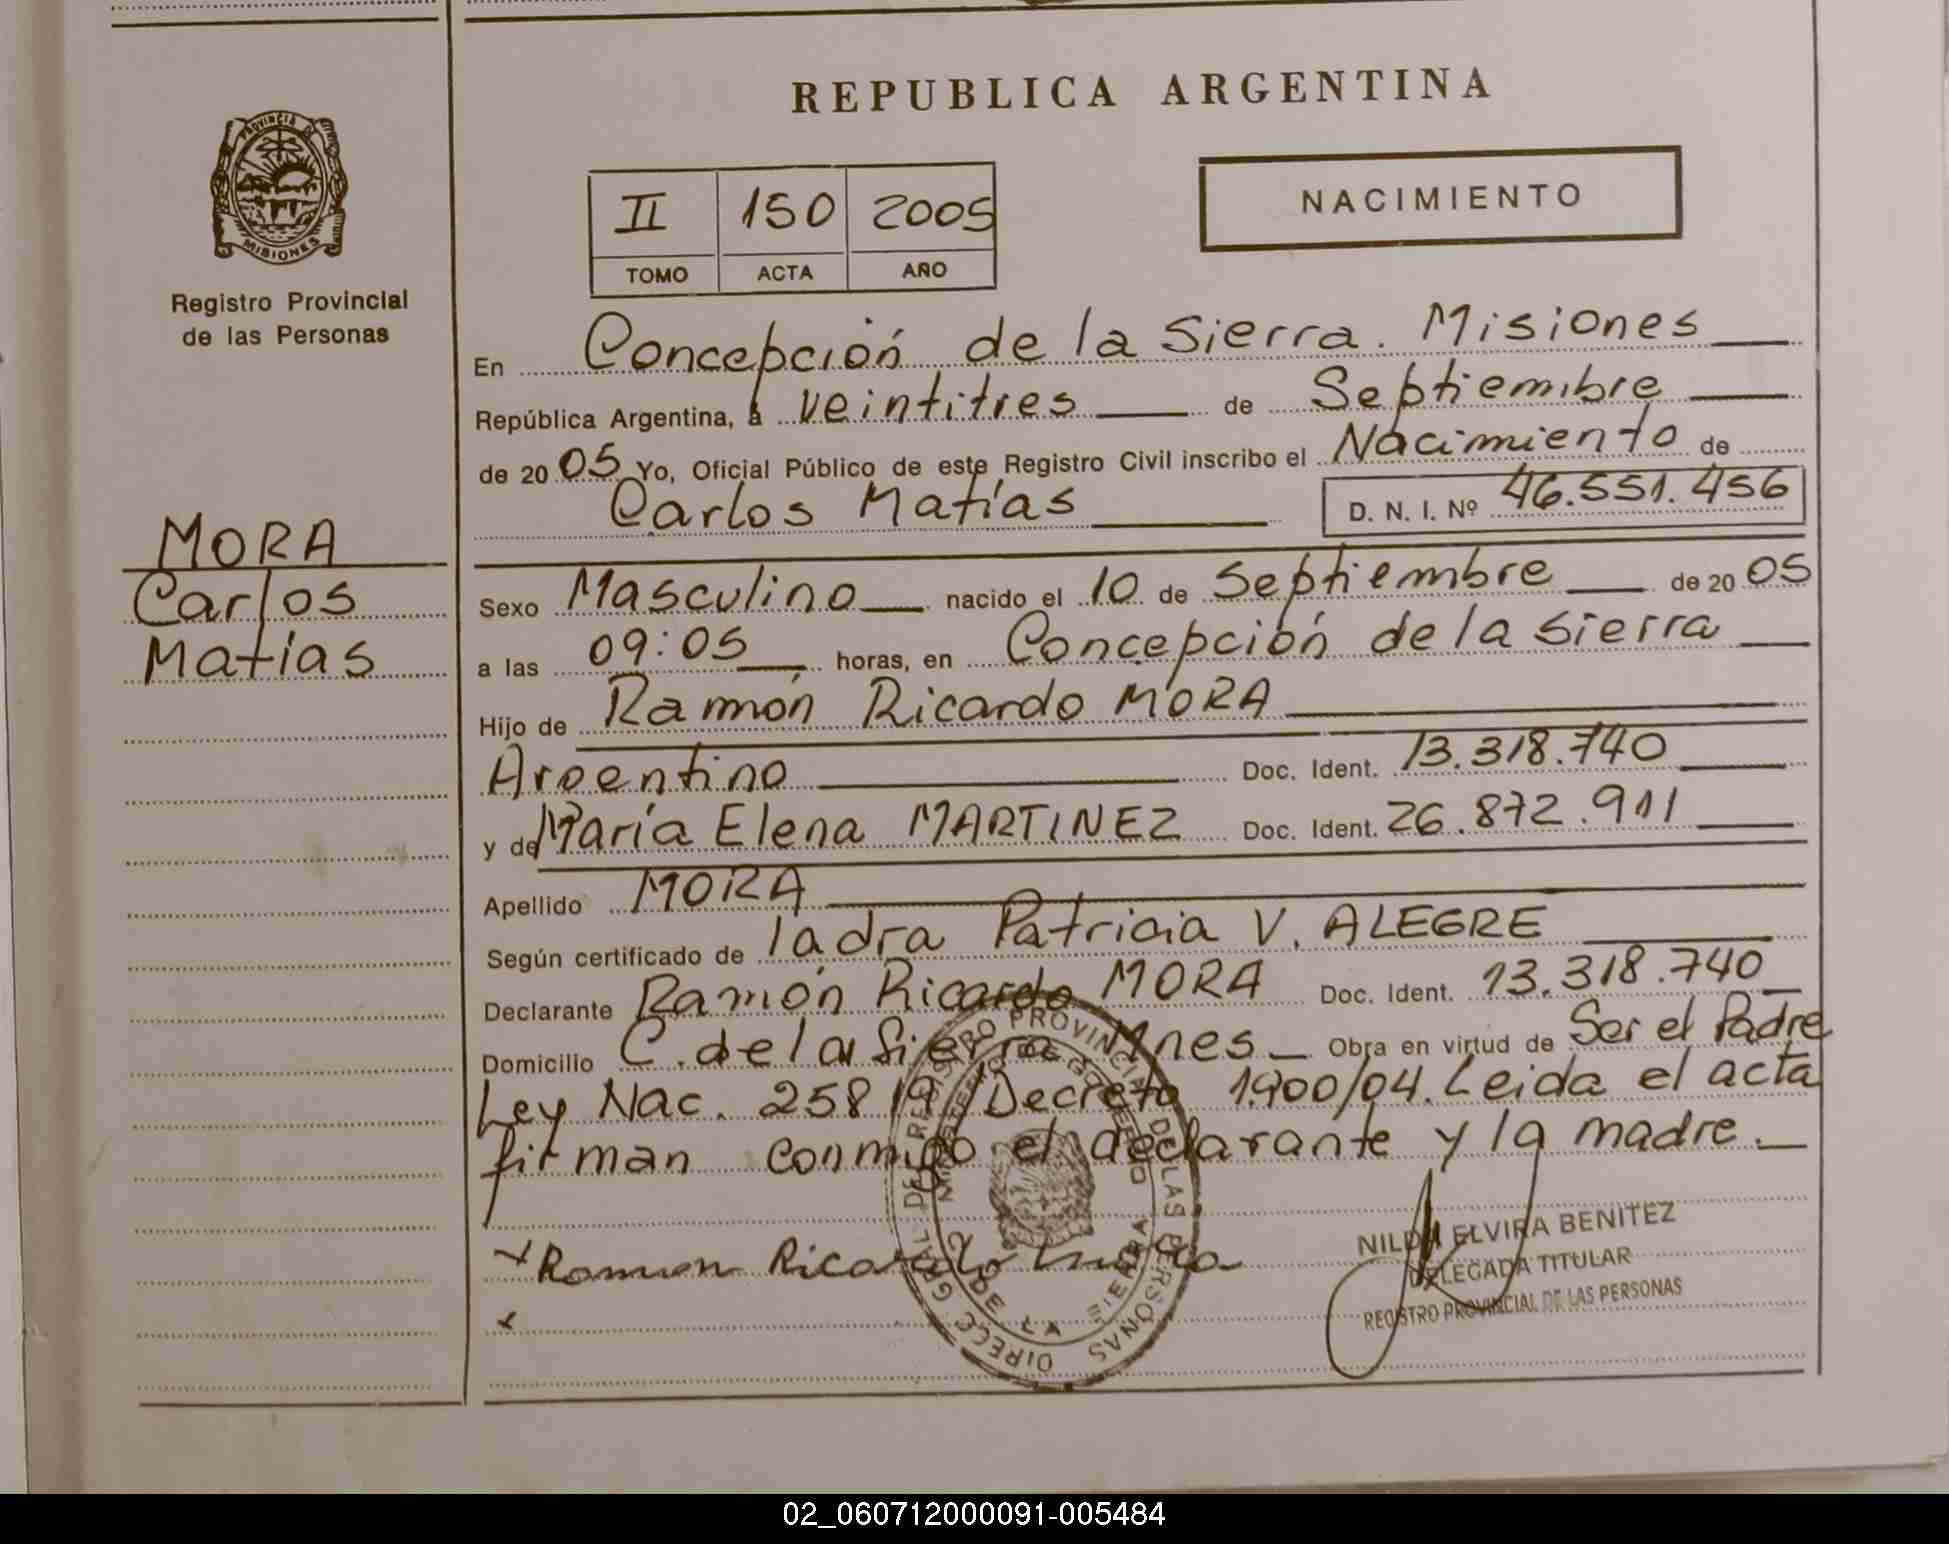 REPUBLICA ARGENTINA
PROVINCIA DE
MISIONES
Registro Provincial
de las Personas
II 150 2005
TOMO ACTA AÑO
NACIMIENTO
MORA
Carlos
Matías
En Concepción de la Sierra. Misiones
República Argentina, a veintitres de Septiembre
de 2005 Yo, Oficial Público de este Registro Civil inscribo el Nacimiento de
Carlos Matías D. N. I. Nº 46.551.456
Sexo Masculino nacido el 10 de Septiembre de 2005
a las 09:05 horas, en Concepción de la Sierra
Hijo de Ramón Ricardo MORA
Argentino Doc. Ident. 13.318.740
y de María Elena MARTINEZ Doc. Ident. 26.872.911
Apellido MORA
Según certificado de la dra Patricia V. ALEGRE
Declarante Ramón Ricardo MORA Doc. Ident. 13.318.740
Domicilio C. de la Sierra Mnes Obra en virtud de Ser el Padre
Ley Nac. 25819/Decreto 1900/04. Leida el acta
firman conmigo el declarante y la madre.
x Ramon Ricardo Mora
x
NILDA ELVIRA BENITEZ
DELEGADA TITULAR
REGISTRO PROVINCIAL DE LAS PERSONAS
DIRECC. GRAL. DE REGISTRO PROVINCIAL DE LAS PERSONAS
02_060712000091-005484